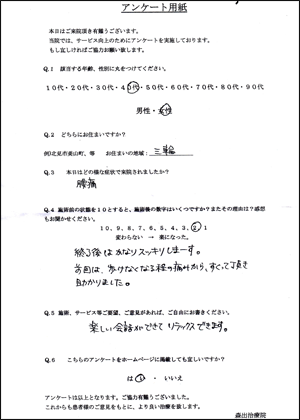 アンケート用紙
本日はご来院頂き有難うございます。
当院では、サービス向上のためにアンケートを実施しております。
もし宜しければご協力お願い致します。
Q.1 該当する年齢、性別に丸をつけてください。
10代・20代・30代・40代・50代・60代・70代・80代・90代
男性・女性
Q.2 どちらにお住まいですか？
例)北見市東山町、等 お住まいの地域： 三輪
Q.3 本日はどの様な症状で来院されましたか？
腰痛
Q.4 施術前の状態を10とすると、施術後の数字はいくつですか？またその理由は？感想
もお聞かせください。
10、9、8、7、6、5、4、3、2、1
変わらない → 楽になった。
終了後はかなりスッキリしまーす。
前回は、歩けなくなる程の痛みから、すくって頂き
助かりました。
Q.5 施術、サービス等ご要望、ご意見があれば、ご自由にお書きください。
楽しい会話ができて リラックスできます。
Q.6 こちらのアンケートをホームページに掲載しても宜しいですか？
はい・いいえ
アンケートは以上となります。ご協力有難うございました。
これからも患者様のご意見をもとに、より良い治療を致します。
森出治療院